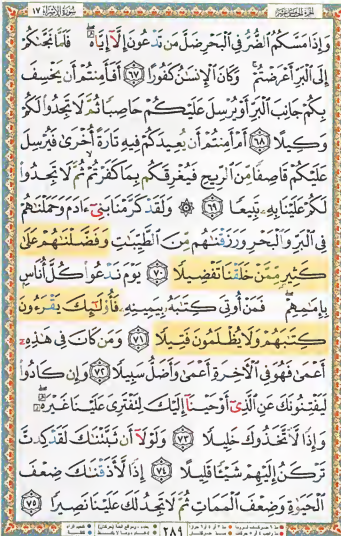 سورة الإسراء ١٧
وَإِذَا مَسَّكُمُ الضُّرُّ فِي الْبَحْرِ ضَلَّ مَن تَدْعُونَ إِلَّا إِيَّاهُ فَلَمَّا نَجَّىٰكُمْ
إِلَى الْبَرِّ أَعْرَضْتُمْ وَكَانَ الْإِنسَٰنُ كَفُورًا ٦٧ أَفَأَمِنتُمْ أَن يَخْسِفَ
بِكُمْ جَانِبَ الْبَرِّ أَوْ يُرْسِلَ عَلَيْكُمْ حَاصِبًا ثُمَّ لَا تَجِدُوا لَكُمْ
وَكِيلًا ٦٨ أَمْ أَمِنتُمْ أَن يُعِيدَكُمْ فِيهِ تَارَةً أُخْرَىٰ فَيُرْسِلَ
عَلَيْكُمْ قَاصِفًا مِّنَ الرِّيحِ فَيُغْرِقَكُم بِمَا كَفَرْتُمْ ثُمَّ لَا تَجِدُوا
لَكُمْ عَلَيْنَا بِهِ تَبِيعًا ٦٩ ۞ وَلَقَدْ كَرَّمْنَا بَنِي ءَادَمَ وَحَمَلْنَٰهُمْ
فِي الْبَرِّ وَالْبَحْرِ وَرَزَقْنَٰهُم مِّنَ الطَّيِّبَٰتِ وَفَضَّلْنَٰهُمْ عَلَىٰ
كَثِيرٍ مِّمَّنْ خَلَقْنَا تَفْضِيلًا ٧٠ يَوْمَ نَدْعُوا كُلَّ أُنَاسٍ
بِإِمَٰمِهِمْ فَمَنْ أُوتِيَ كِتَٰبَهُ بِيَمِينِهِ فَأُولَٰئِكَ يَقْرَءُونَ
كِتَٰبَهُمْ وَلَا يُظْلَمُونَ فَتِيلًا ٧١ وَمَن كَانَ فِي هَٰذِهِ
أَعْمَىٰ فَهُوَ فِي الْآخِرَةِ أَعْمَىٰ وَأَضَلُّ سَبِيلًا ٧٢ وَإِن كَادُوا
لَيَفْتِنُونَكَ عَنِ الَّذِي أَوْحَيْنَا إِلَيْكَ لِتَفْتَرِيَ عَلَيْنَا غَيْرَهُ
وَإِذًا لَّاتَّخَذُوكَ خَلِيلًا ٧٣ وَلَوْلَا أَن ثَبَّتْنَٰكَ لَقَدْ كِدتَّ
تَرْكَنُ إِلَيْهِمْ شَيْئًا قَلِيلًا ٧٤ إِذًا لَّأَذَقْنَٰكَ ضِعْفَ
الْحَيَوٰةِ وَضِعْفَ الْمَمَاتِ ثُمَّ لَا تَجِدُ لَكَ عَلَيْنَا نَصِيرًا ٧٥
٢٨٩